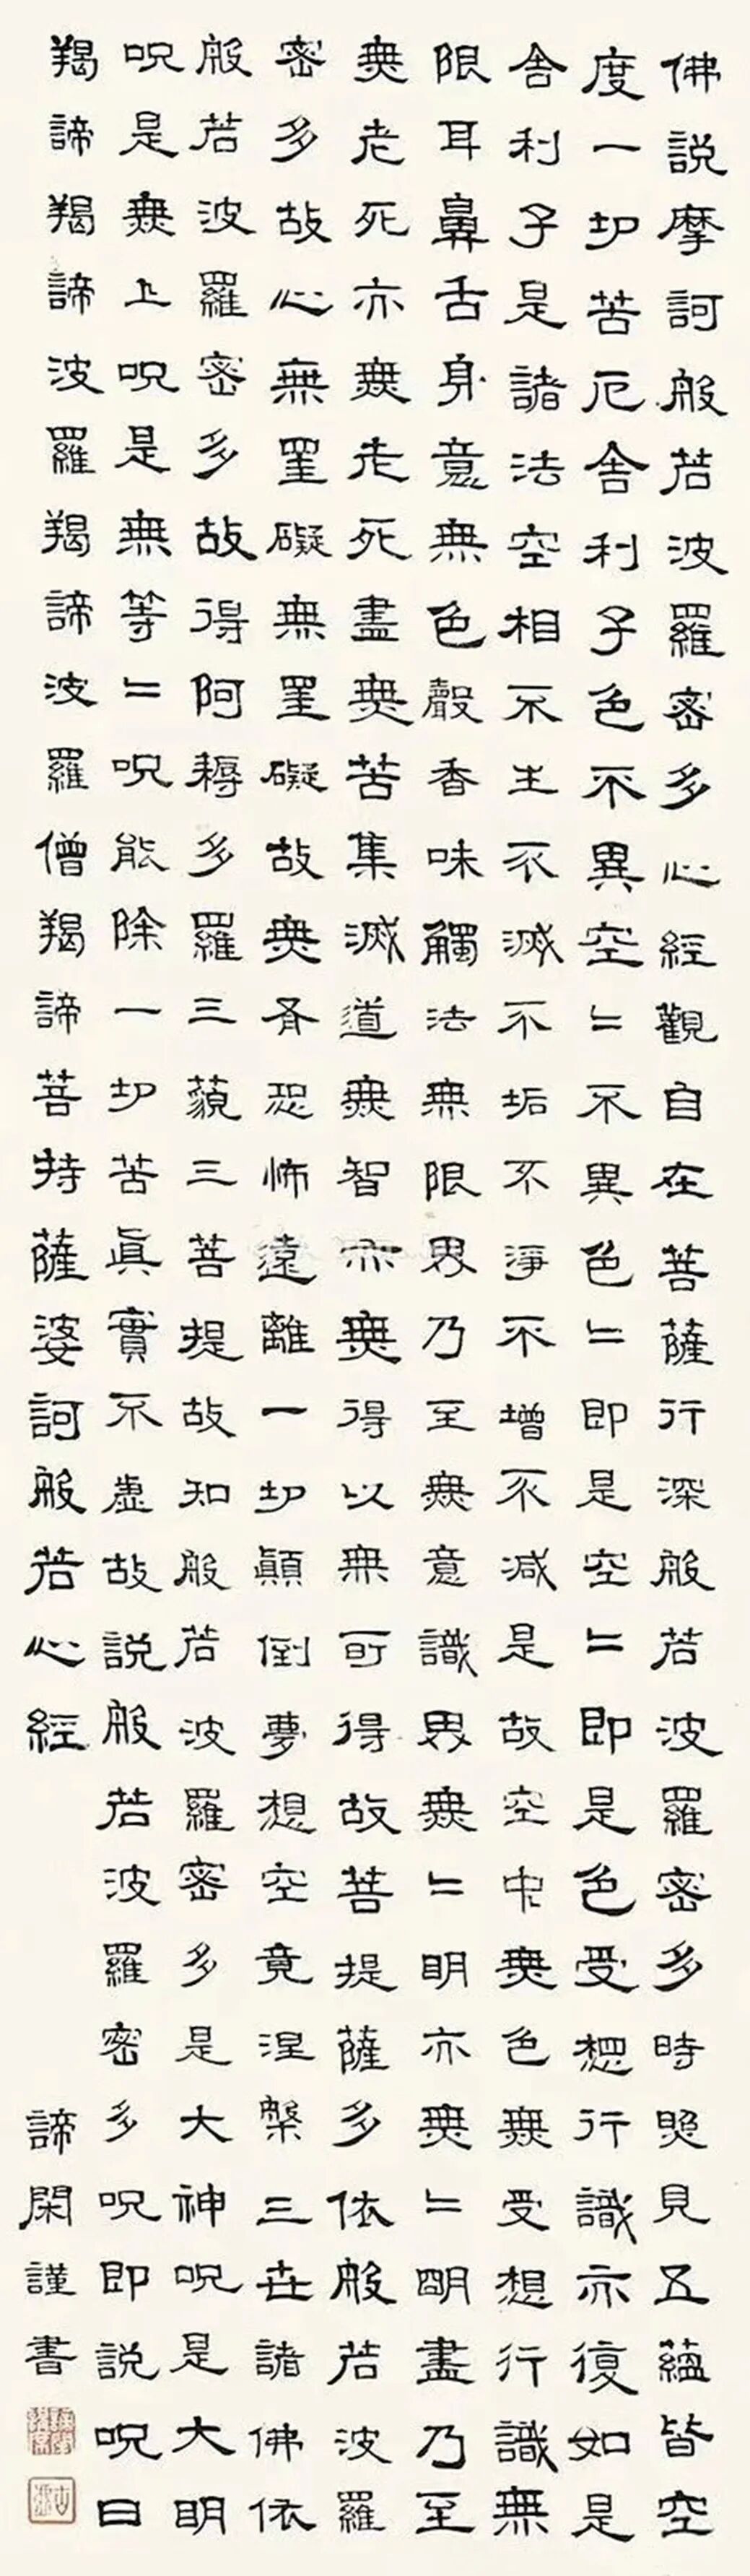 佛說摩訶般若波羅密多心經觀自在菩薩行深般若波羅密多時照見五蘊皆空
度一切苦厄舍利子色不異空〻不異色〻即是空〻即是色受想行識亦復如是
舍利子是諸法空相不生不滅不垢不淨不增不減是故空中無色無受想行識無
限耳鼻舌身意無色聲香味觸法無限界乃至無意識界無〻明亦無〻明盡乃至
無老死亦無老死盡無苦集滅道無智亦無得以無可得故菩提薩多依般若波羅
密多故心無罣礙無罣礙故無有恐怖遠離一切顛倒夢想空竟涅槃三世諸佛依
般若波羅密多故得阿耨多羅三藐三菩提故知般若波羅密多是大神呪是大明
呪是無上呪是無等〻呪能除一切苦真實不虛故說般若波羅密多呪即說呪曰
羯諦羯諦波羅羯諦波羅僧羯諦菩持薩婆訶般若心經
諦閑謹書